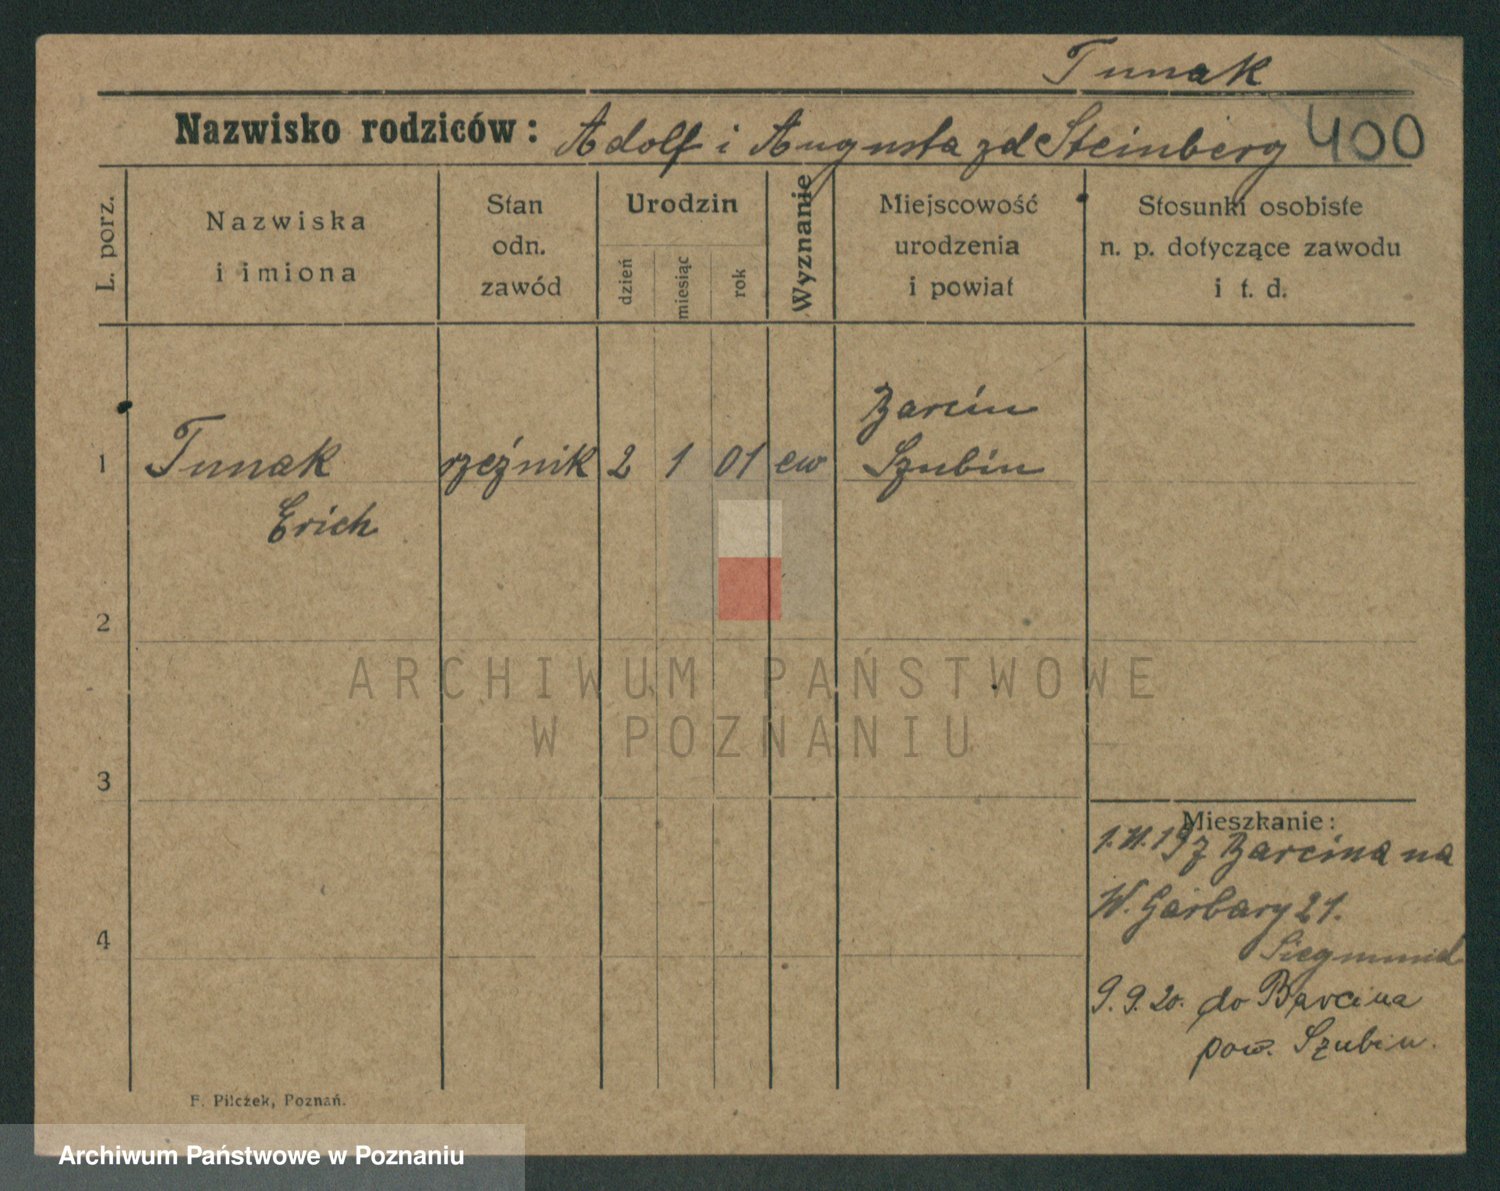 Tunak
Nazwisko rodziców: Adolf i Augusta zd Steinberg 400
L. porz.
Nazwiska
i imiona
Stan
odn.
zawód
Urodzin
dzień
miesiąc
rok
Wyznanie
Miejscowość
urodzenia
i powiat
Stosunki osobiste
n. p. dotyczące zawodu
i t. d.
Barcin
1 Tunak rzeźnik 2 1 01 ew Szubin
Erich
2
ARCHIWUM PAŃSTWOWE
W POZNANIU
3
Mieszkanie:
z Barcina na
W. Garbary 21.
4
Siegmund
9.9.20. do Barcina
pow. Szubin.
F. Pilczek, Poznań.
Archiwum Państwowe w Poznaniu